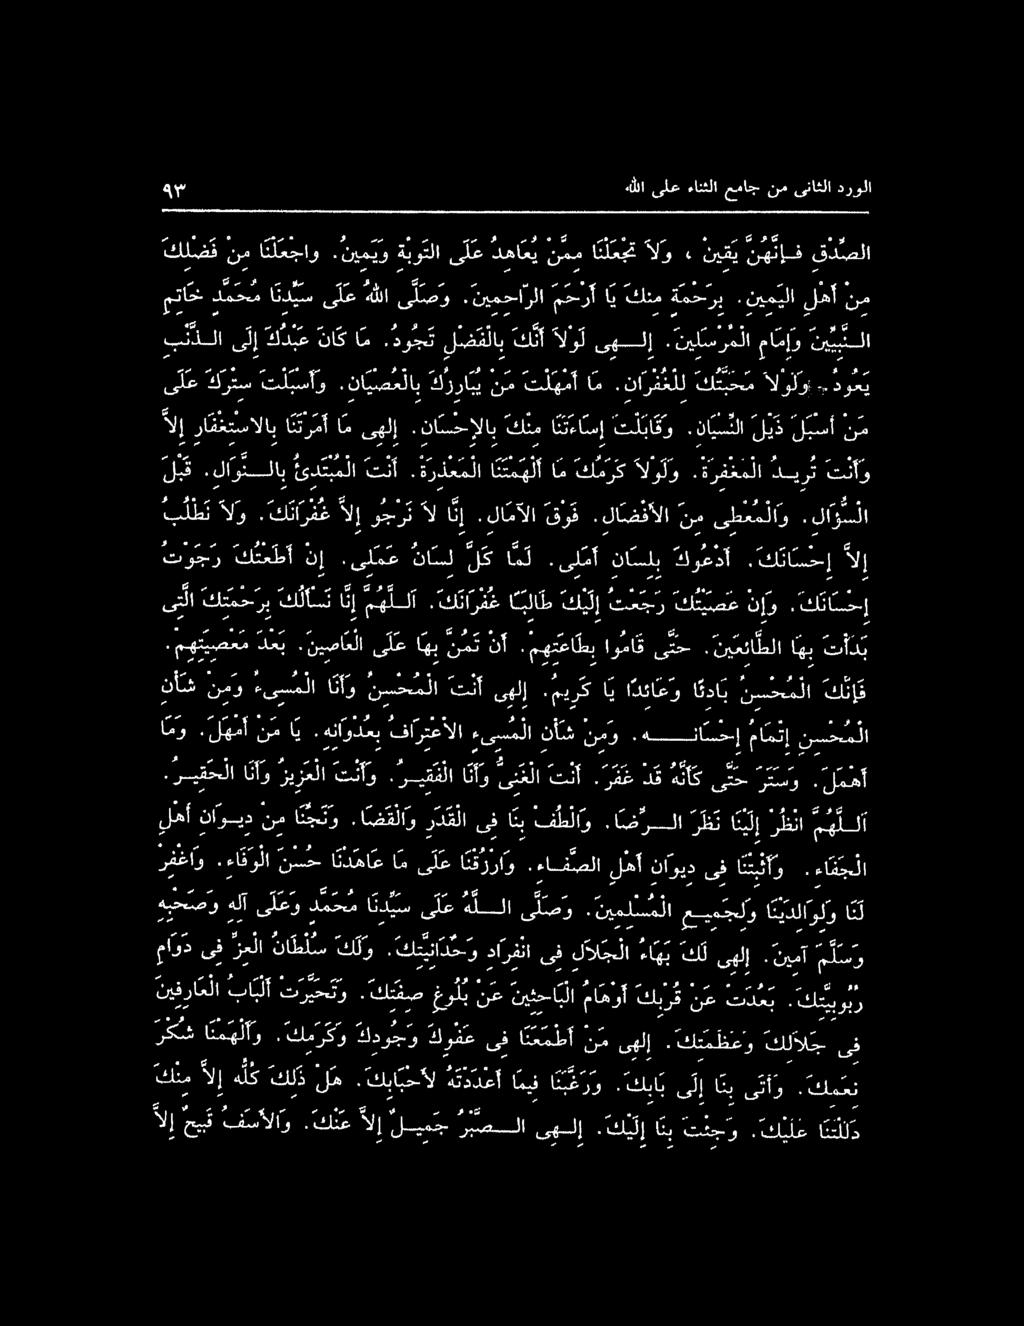 الورد الثانى من جامع الثناء على الله ٩٣
الصِّدْقِ فَإِنَّهُنَّ يَقِينٌ ، وَلاَ تَجْعَلْنَا مِمَّنْ يُعَاهِدُ عَلَى التَّوْبَةِ وَيَمِينُ. وَاجْعَلْنَا مِنْ فَضْلِكَ
مِنْ أَهْلِ الْيَمِينِ. بِرَحْمَةٍ مِنكَ يَا أَرْحَمَ الرَّاحِمِينَ. وَصَلَّى اللهُ عَلَى سَيِّدِنَا مُحَمَّدٍ خَاتِمِ
النَّبِيِّينَ وَإِمَامِ الْمُرْسَلِينَ. إِلـهِى لَوْلاَ أَنَّكَ بِالْفَضْلِ تَجُودُ. مَا كَانَ عَبْدُكَ إِلَى الذَّنْبِ
يَعُودُ. وَلَوْلاَ مَحَبَّتُكَ لِلْغُفْرَانِ. مَا أَمْهَلْتَ مَنْ يُبَارِزُكَ بِالْعِصْيَانِ. وَأَسْبَلْتَ سِتْرَكَ عَلَى
مَنْ أَسْبَلَ ذَيْلَ النِّسْيَانِ. وَقَابَلْتَ إِسَاءَتَنَا مِنْكَ بِالإِحْسَانِ. إِلهِى مَا أَمَرْتَنَا بِالاسْتِغْفَارِ إِلاَّ
وَأَنْتَ تُرِيـدُ الْمَغْفِرَةَ. وَلَوْلاَ كَرَمُكَ مَا أَلْهَمْتَنَا الْمَعْذِرَةَ. أَنْتَ الْمُبْتَدِئُ بِالنَّوَالِ. قَبْلَ
السُّؤَالِ. وَالْمُعْطِى مِنَ الأَفْضَالِ. فَوْقَ الآمَالِ. إِنَّا لاَ نَرْجُو إِلاَّ غُفْرَانَكَ. وَلاَ نَطْلُبُ
إِلاَّ إِحْسَانَكَ. أَدْعُوكَ بِلِسَانِ أَمَلِى. لَمَّا كَلَّ لِسَانُ عَمَلِى. إِنْ أَطَعْتُكَ رَجَوْتُ
إِحْسَانَكَ. وَإِنْ عَصَيْتُكَ رَجَعْتُ إِلَيْكَ طَالِبًا غُفْرَانَكَ. اَللَّهُمَّ إِنَّا نَسْأَلُكَ بِرَحْمَتِكَ الَّتِى
بَدَأْتَ بِهَا الطَّائِعِينَ. حَتَّى قَامُوا بِطَاعَتِهِمْ. أَنْ تَمُنَّ بِهَا عَلَى الْعَاصِينَ. بَعْدَ مَعْصِيَتِهِمْ.
فَإِنَّكَ الْمُحْسِنُ بَادِئًا وَعَائِدًا يَا كَرِيمُ. إِلهِى أَنْتَ الْمُحْسِنُ وَأَنَا الْمُسِىءُ وَمِنْ شَأْنِ
الْمُحْسِنِ إِتْمَامُ إِحْسَانِـهِ. وَمِنْ شَأْنِ الْمُسِىءِ الاْعْتِرَافُ بِعُدْوَانِهِ. يَا مَنْ أَمْهَلَ. وَمَا
أَهْمَلَ. وَسَتَرَ حَتَّى كَأَنَّهُ قَدْ غَفَرَ. أَنْتَ الْغَنِىُّ وَأَنَا الْفَقِيـرُ. وَأَنْتَ الْعَزِيزُ وَأَنَا الْحَقِيـرُ.
اَللَّهُمَّ انْظُرْ إِلَيْنَا نَظَرَ الـرِّضَا. وَالْطُفْ بِنَا فِى الْقَدَرِ وَالْقَضَا. وَنَجِّنَا مِنْ دِيـوَانِ أَهْلِ
الْجَفَاءِ. وَأَثْبِتْنَا فِى دِيوَانِ أَهْلِ الصَّفَـاءِ. وَارْزُقْنَا عَلَى مَا عَاهَدْنَا حُسْنَ الْوَفَاءِ. وَاغْفِرْ
لَنَا وَلِوَالِدَيْنَا وَلِجَمِيـعِ الْمُسْلِمِينَ. وَصَلَّى اللَّهُ عَلَى سَيِّدِنَا مُحَمَّدٍ وَعَلَى آلِهِ وَصَحْبِهِ
وَسَلَّمَ آمِينَ. إِلهِى لَكَ بَهَاءُ الْجَلاَلِ فِى انْفِرَادِ وَحْدَانِيَّتِكَ. وَلَكَ سُلْطَانُ الْعِزِّ فِى دَوَامِ
رُبُوبِيَّتِكَ. بَعُدَتْ عَنْ قُرْبِكَ أَوْهَامُ الْبَاحِثِينَ عَنْ بُلُوغِ صِفَتِكَ. وَتَحَيَّرَتْ أَلْبَابُ الْعَارِفِينَ
فِى جَلاَلِكَ وَعَظَمَتِكَ. إِلهِى مَنْ أَطْمَعَنَا فِى عَفْوِكَ وَجُودِكَ وَكَرَمِكَ. وَأَلْهَمَنَا شُكْرَ
نِعَمِكَ. وَأَتَى بِنَا إِلَى بَابِكَ. وَرَغَّبَنَا فِيمَا أَعْدَدْتَهُ لأَحْبَابِكَ. هَلْ ذَلِكَ كُلُّهُ إِلاَّ مِنْكَ
دَلَلْتَنَا عَلَيْكَ. وَجِئْتَ بِنَا إِلَيْكَ. إِلـهِى الـصَّبْرُ جَمِيـلٌ إِلاَّ عَنْكَ. وَالأَسَفُ قَبِيحٌ إِلاَّ